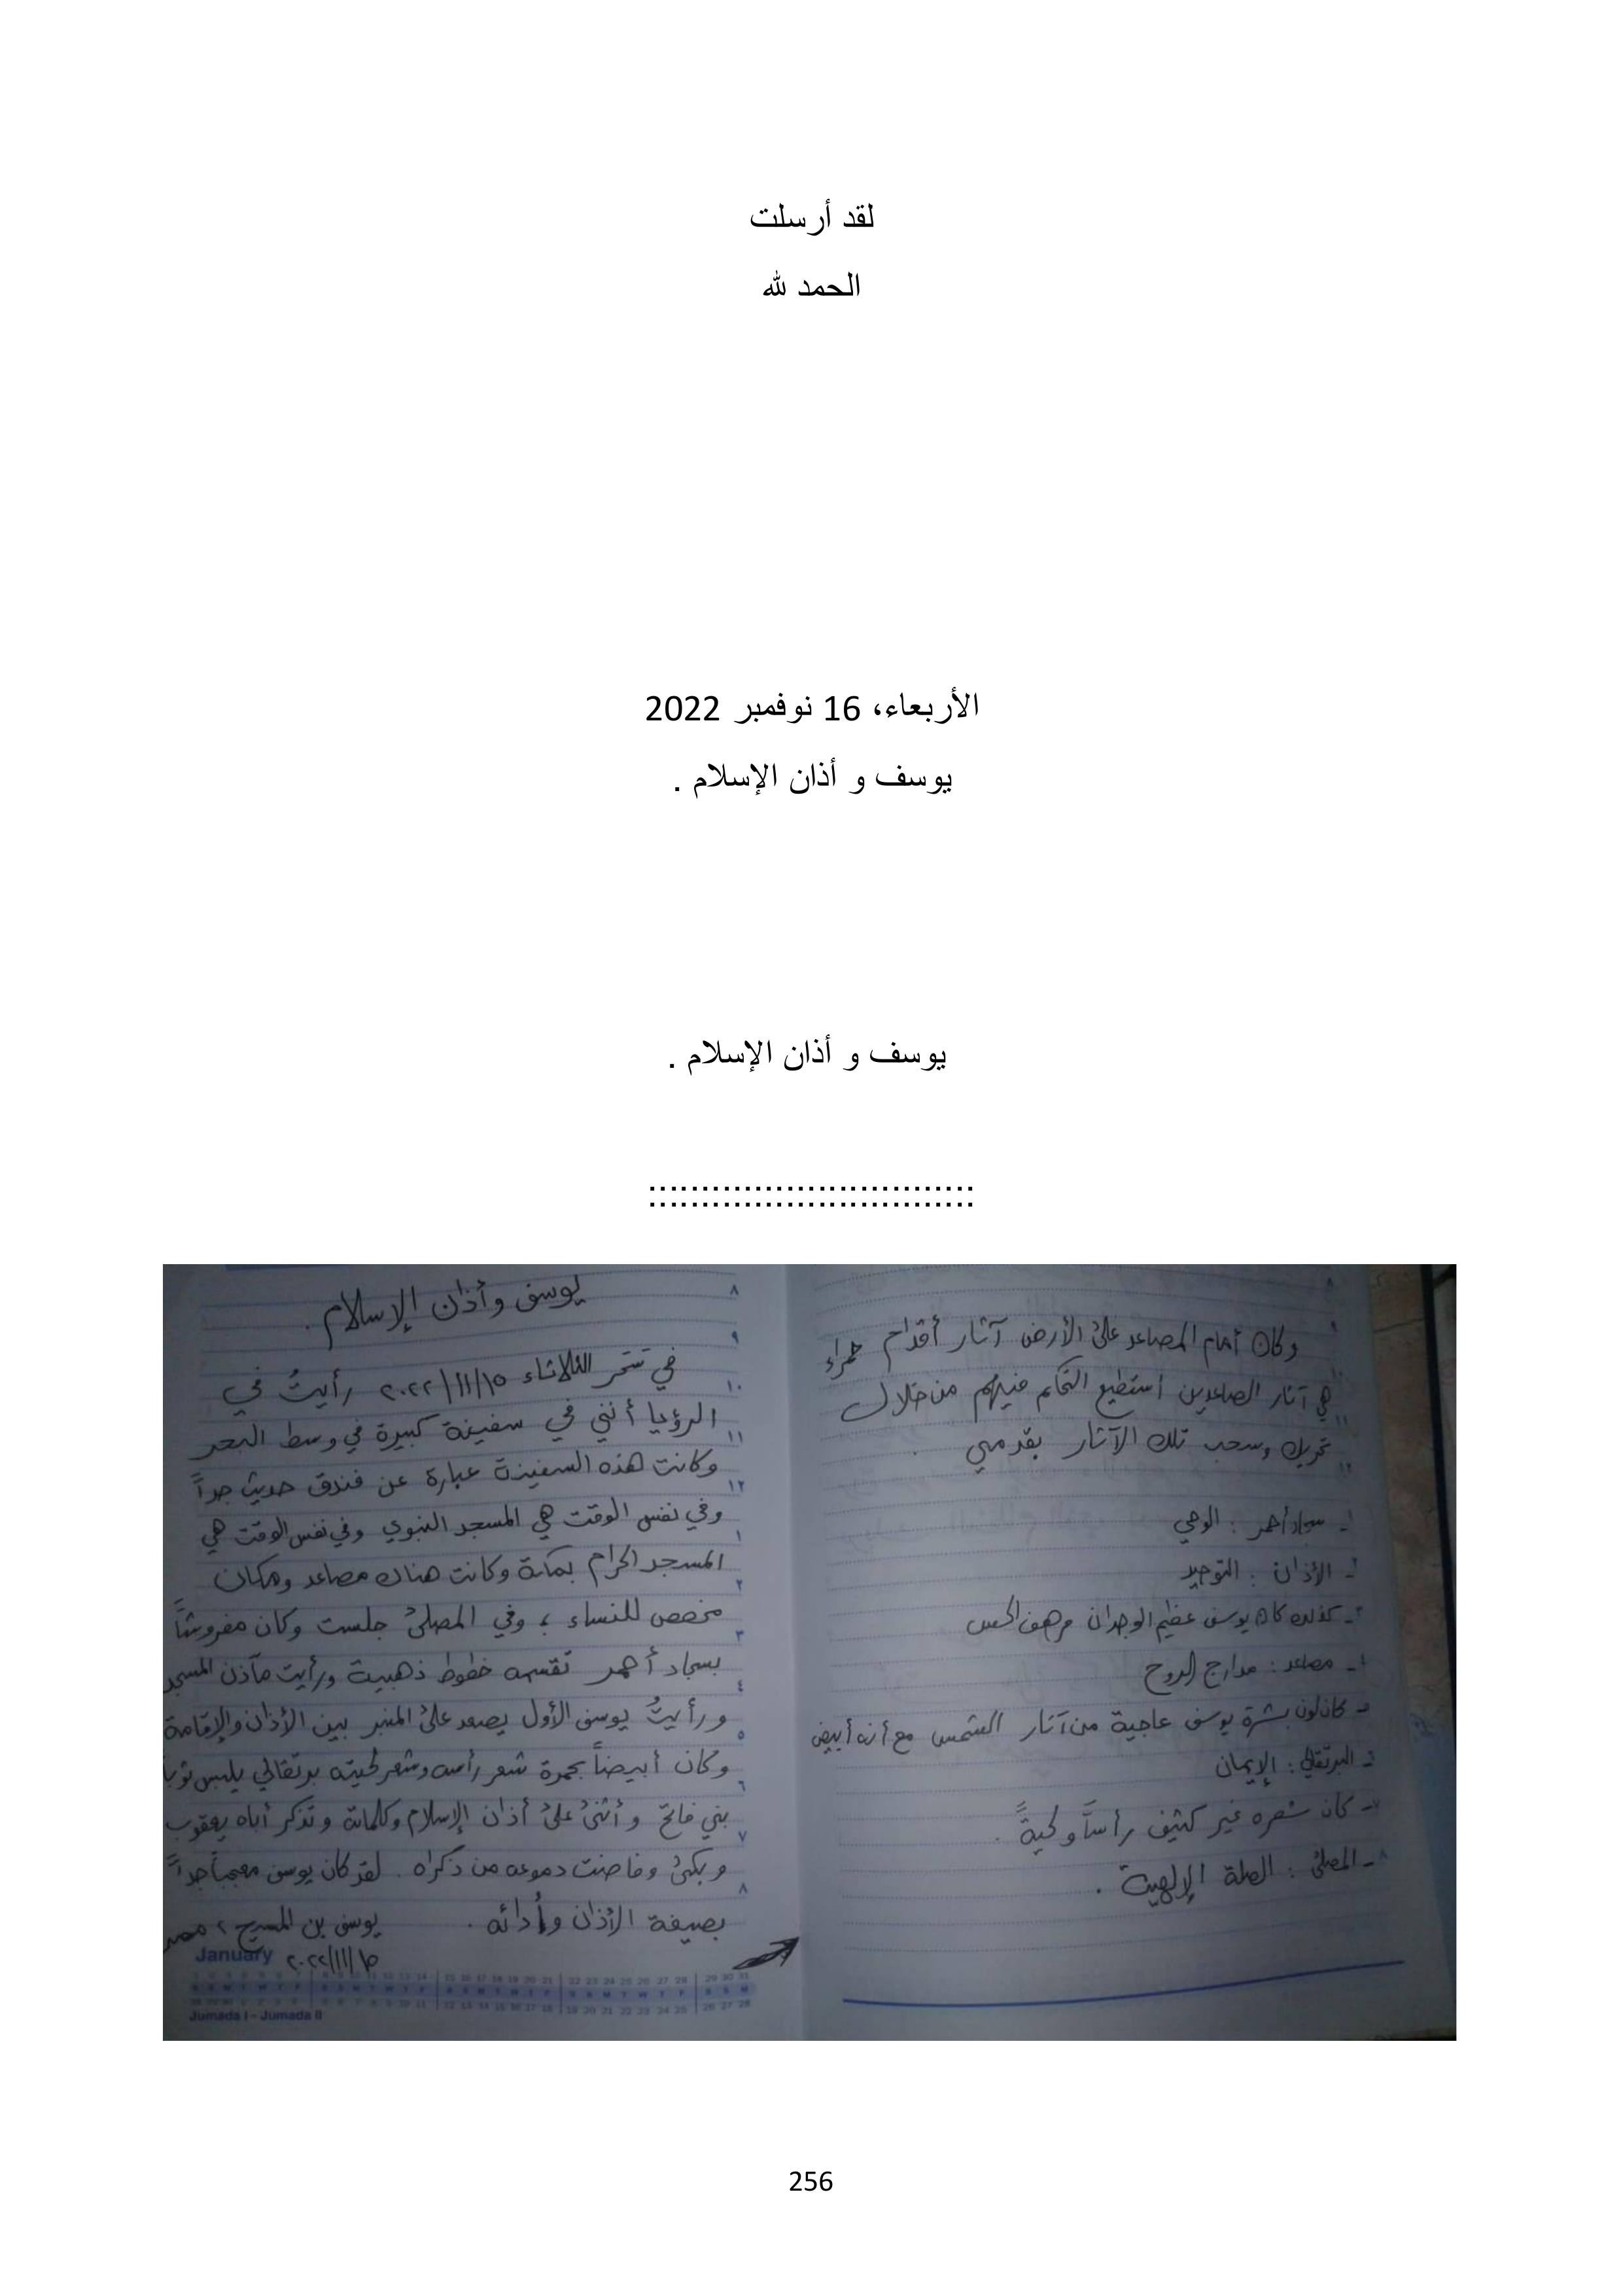 لقد أرسلت
الحمد لله
الأربعاء، 16 نوفمبر 2022
يوسف و أذان الإسلام .
يوسف و أذان الإسلام .
:::::::::::::::::::::::::::::::
يوسف وأذان الإسلام .
في سَحَر الثلاثاء ٢٠٢٢/١١/١٥ رأيتُ في
الرؤيا أنني في سفينة كبيرة في وسط البحر
وكانت هذه السفينة عبارة عن فندق حديث جداً
وفي نفس الوقت هي المسجد النبوي وفي نفس الوقت هي
المسجد الحرام بمكة وكانت هناك مصاعد ومكان
مخصص للنساء ، وفي المصلى جلست وكان مفروشاً
بسجاد أحمر تقسمه خطوط ذهبية ورأيت مآذن المسجد
ورأيتُ يوسف الأول يصعد على المنبر بين الأذان والإقامة
وكان أبيضاً بحمرة شعر رأسه وشعر لحيته برتقالي يلبس ثوباً
بني فاتح وأثنى على أذان الإسلام وكلماته وتذكر أباه يعقوب
وبكى وفاضت دموعه من ذكراه . لقد كان يوسف معجباً جداً
بصيغة الأذان وأدائه .
يوسف بن المسيح ، مصر
٢٠٢٢/١١/١٥
January
Jumada I - Jumada II
وكان أمام المصاعد على الأرض آثار أقدام حمراء
هي آثار الصاعدين أستطيع التحكم فيهم من خلال
تحريك وسحب تلك الآثار بقدمي .
١- سجاد أحمر : الوحي
٢- الأذان : التوحيد
٣- كذلك كان يوسف عظيم الوجدان مرهف الحس
٤- مصاعد : مدارج الروح
٥- كان لون بشرة يوسف عاجية من آثار الشمس مع أنه أبيض
٦- البرتقالي : الإيمان
٧- كان شعره غير كثيف رأساً ولحيةً .
٨- المصلى : الصلة الإلهية .
256